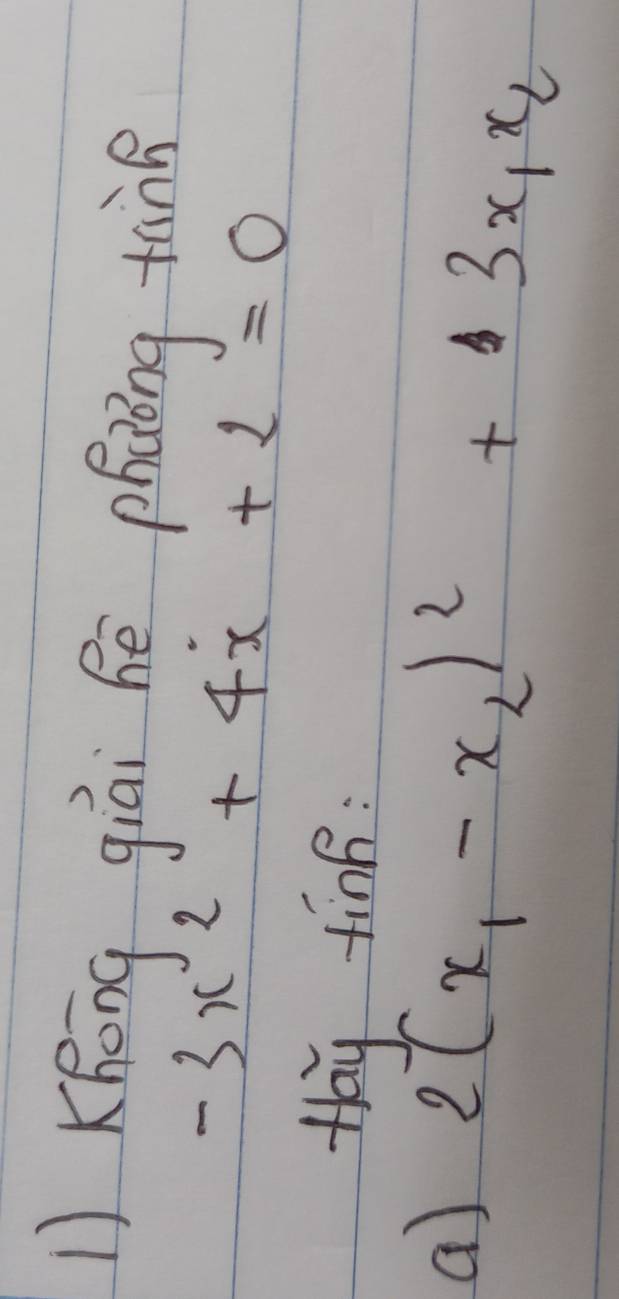 1) Không giải hệ phương trình
-3x² + 4x + 2 = 0
Hãy tính:
a) 2(x₁ - x₂)² + 3x₁x₂